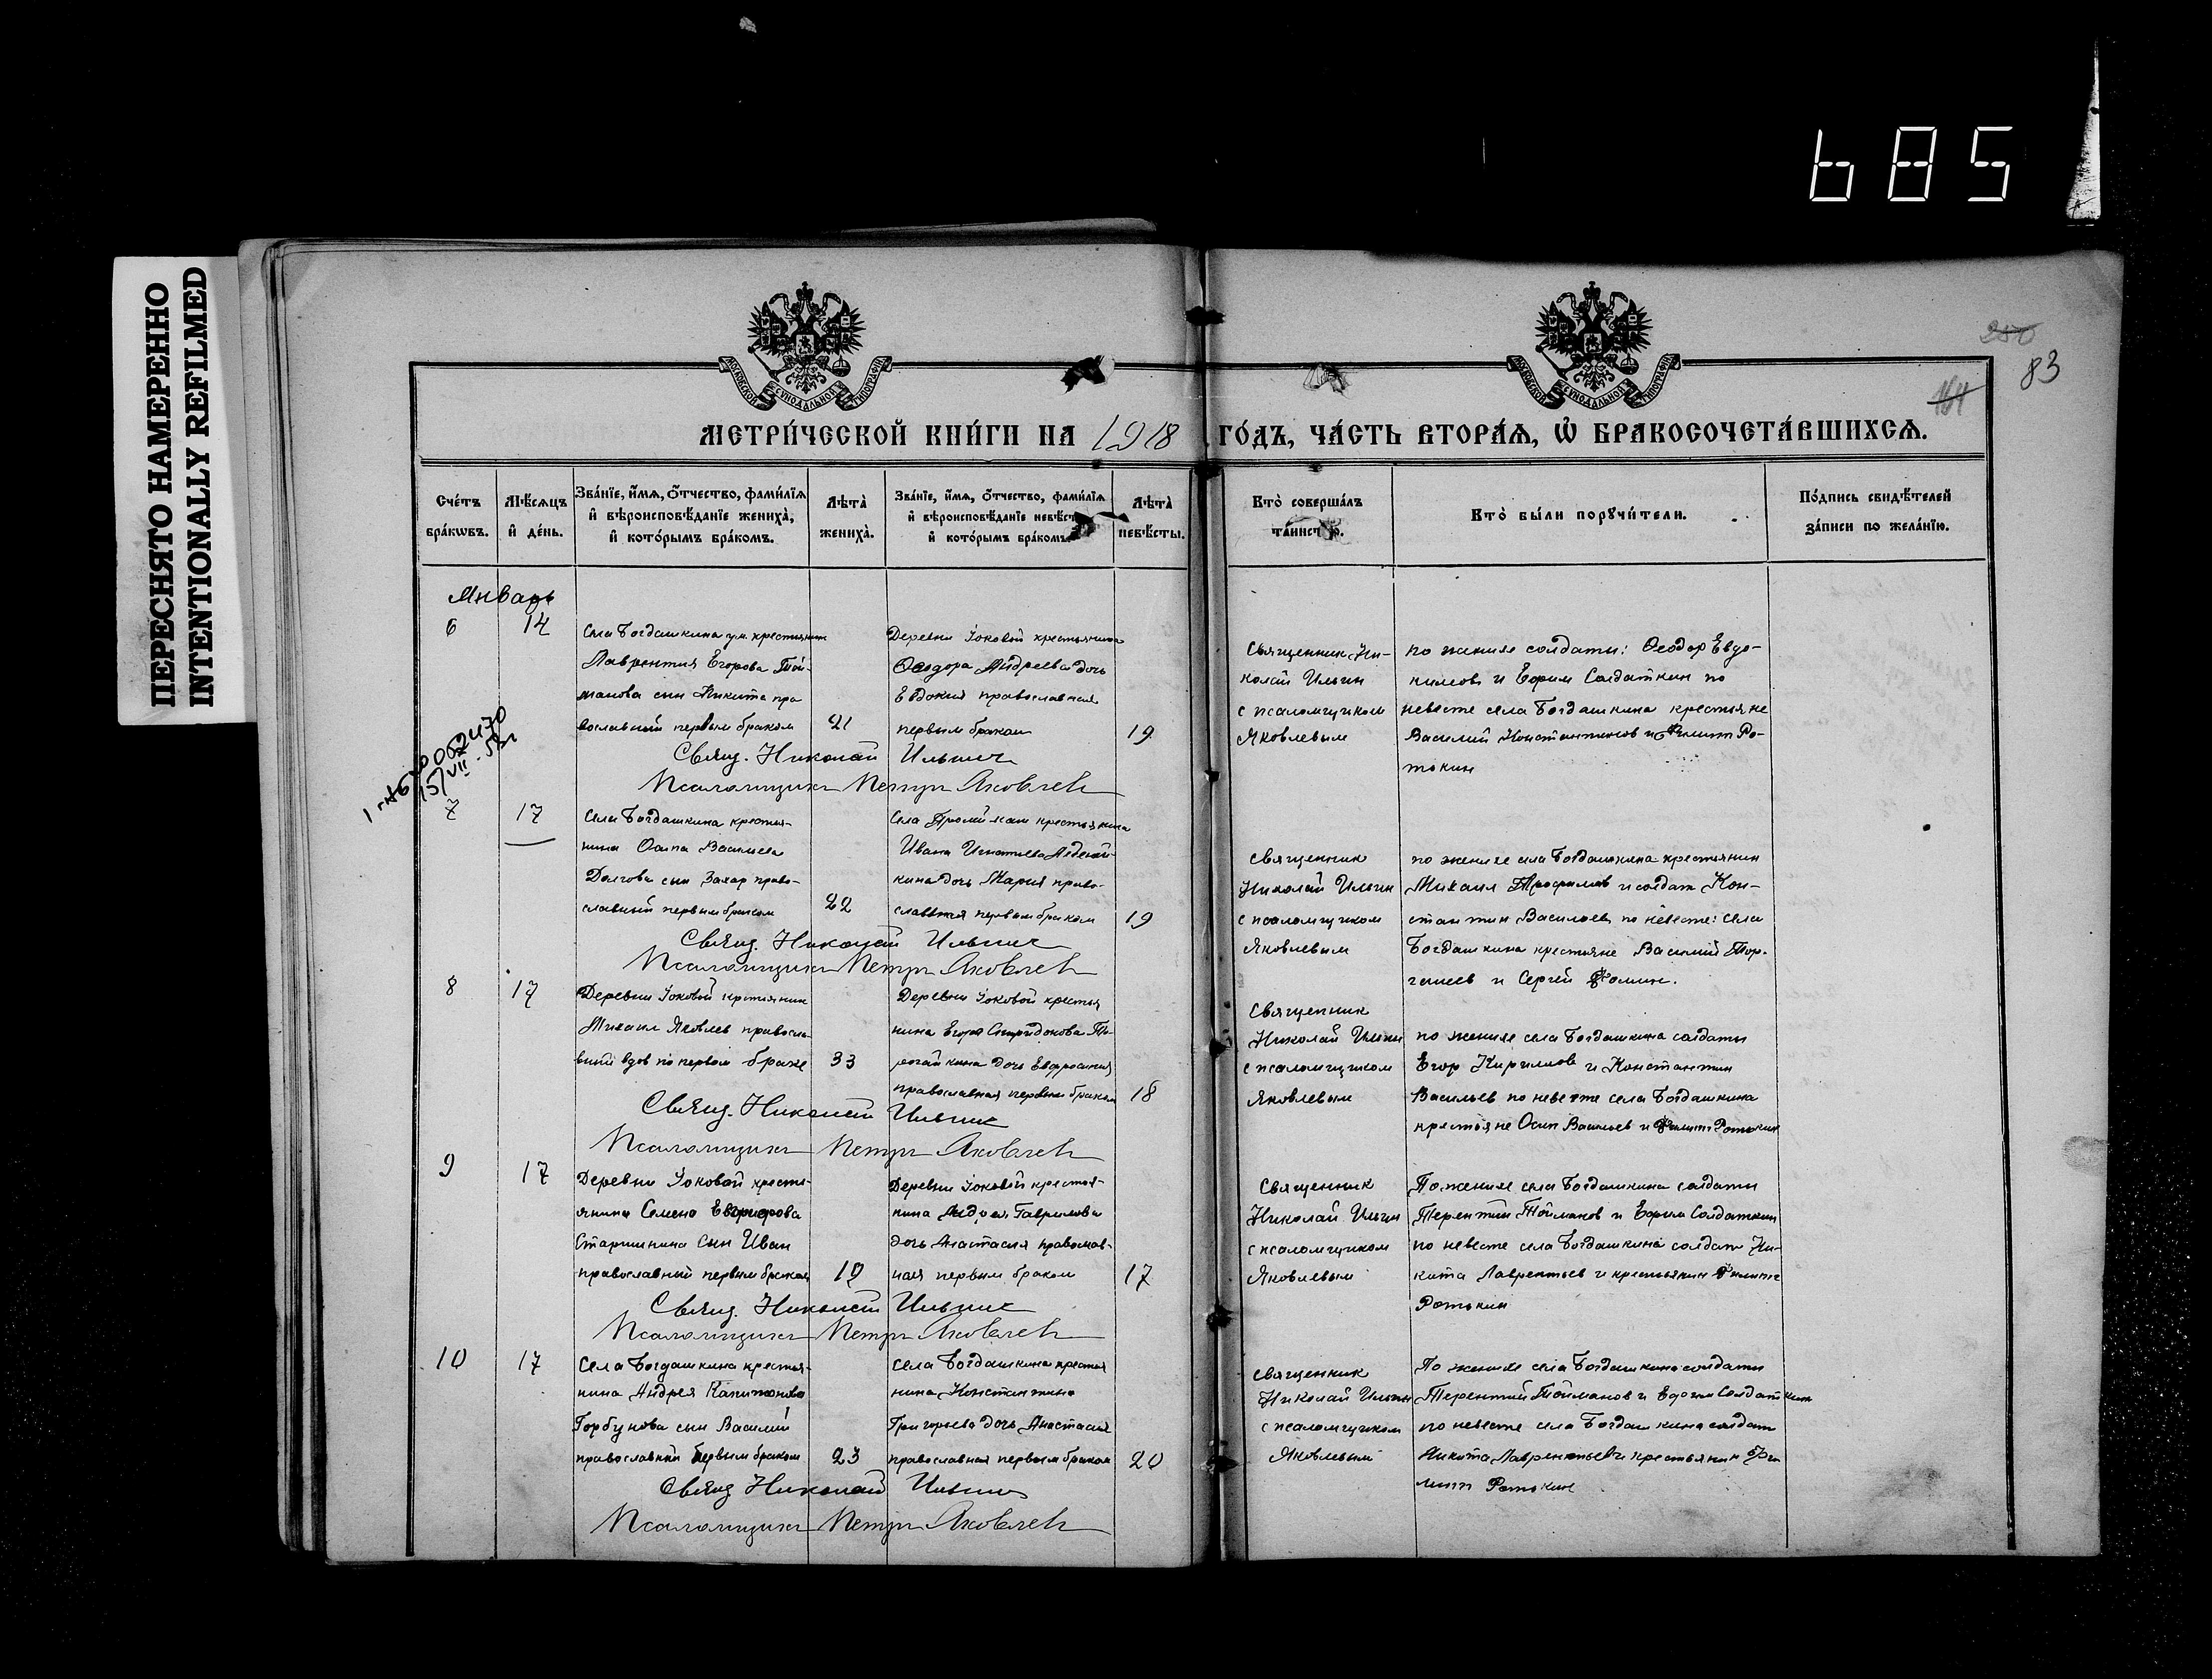 685
ПЕРЕСНЯТО НАМЕРЕННО
INTENTIONALLY REFILMED
МОСКОВСКОЙ СѴНОДАЛЬНОЙ ТИПОГРАФІИ
МОСКОВСКОЙ СѴНОДАЛЬНОЙ ТИПОГРАФІИ
250
83
164
МЕТРИ́ЧЕСКОЙ КНИ́ГИ НА 1918 ГО́ДЪ, ЧА́СТЬ ВТОРА́Я, Ѡ БРАКОСОЧЕТА́ВШИХСЯ.
Сче́тъ бра́кѡвъ.
Мѣ́сяцъ и҆ де́нь.
Зва́нїе, и҆́мя, ѻ҆́тчество, фами́лїя и҆ вѣроисповѣ́данїе жениха̀, и҆ кото́рымъ бра́комъ.
Лѣта̀ жениха̀.
Зва́нїе, и҆́мя, ѻ҆́тчество, фами́лїя и҆ вѣроисповѣ́данїе невѣ́сты, и҆ кото́рымъ бра́комъ.
Лѣта̀ невѣ́сты.
Кто̀ соверша́лъ та́инство.
Кто̀ бы́ли порꙋчи́тели.
По́дпись свидѣ́телей за́писи по жела́нїю.
Январь
6
14
Села Богдашкина ум. крестьянин
Лаврентия Егорова Той-
манова сын Никита пра
вославный первым браком
21
Деревни Уоковой крестьянина
Феодора Андреева дочь
Евдокия православная
первым браком
19
Священник Ни-
колай Ильин
с псаломщиком
Яковлевым
по жениху солдаты: Феодор Евдо-
кимов и Ефрим Солдаткин по
невесте села Богдашкина крестьяне
Василий Константинов и Филипп Ро-
тькин
Свящ. Николай Ильин
Псаломщик Петр Яковлев
15/VII-58г
7
17
Села Богдашкина крестья-
нина Осипа Васильева
Долгова сын Захар право-
славный первым браком
22
Села крестьянина
Ивана Игнатьева
кина дочь Мария право-
славная первым браком
19
Священник
Николай Ильин
с псаломщиком
Яковлевым
по жениху села Богдашкина крестьянин
Михаил Трофимов и солдат Кон-
стантин Васильев, по невесте: села
Богдашкина крестьяне Василий Тор-
гашев и Сергей Фомин.
Свящ. Николай Ильин
Псаломщик Петр Яковлев
8
17
Деревни Уоковой крестьянин
Михаил Яковлев правосла-
вный вдов по первом браке
33
Деревни Уоковой крестья
нина Егора Спиридонова
дочь Евфросиния
православная первым браком
18
Священник
Николай Ильин
с псаломщиком
Яковлевым
по жениху села Богдашкина солдаты
Егор Кириллов и Константин
Васильев по невесте села Богдашкина
крестьяне Осип Васильев и Филипп Ротькин
Свящ. Николай Ильин
Псаломщик Петр Яковлев
9
17
Деревни Уоковой кресть-
янина Семена
Старшинина сын Иван
православный первым браком
19
Деревни Уоковой крестья-
нина Андрея Гаврилова
дочь Анастасия православ-
ная первым браком
17
Священник
Николай Ильин
с псаломщиком
Яковлевым
По жениху села Богдашкина солдаты
Терентий Тойманов и Ефрим Солдаткин
по невесте села Богдашкина солдат Ни-
кита Лаврентьев и крестьянин Филипп
Ротькин
Свящ. Николай Ильин
Псаломщик Петр Яковлев
10
17
Села Богдашкина крестья-
нина Андрея Капитонова
Горбунова сын Василий
православный первым браком
23
Села Богдашкина крестья
нина Константина
Григорьева дочь Анастасия
православная первым браком
20
Священник
Николай Ильин
с псаломщиком
Яковлевым
По жениху села Богдашкина солдаты
Терентий Тойманов и Ефрим Солдаткин
по невесте села Богдашкина солдат
Никита Лаврентьев и крестьянин Фи
липп Ротькин
Свящ Николай Ильин
Псаломщик Петр Яковлев